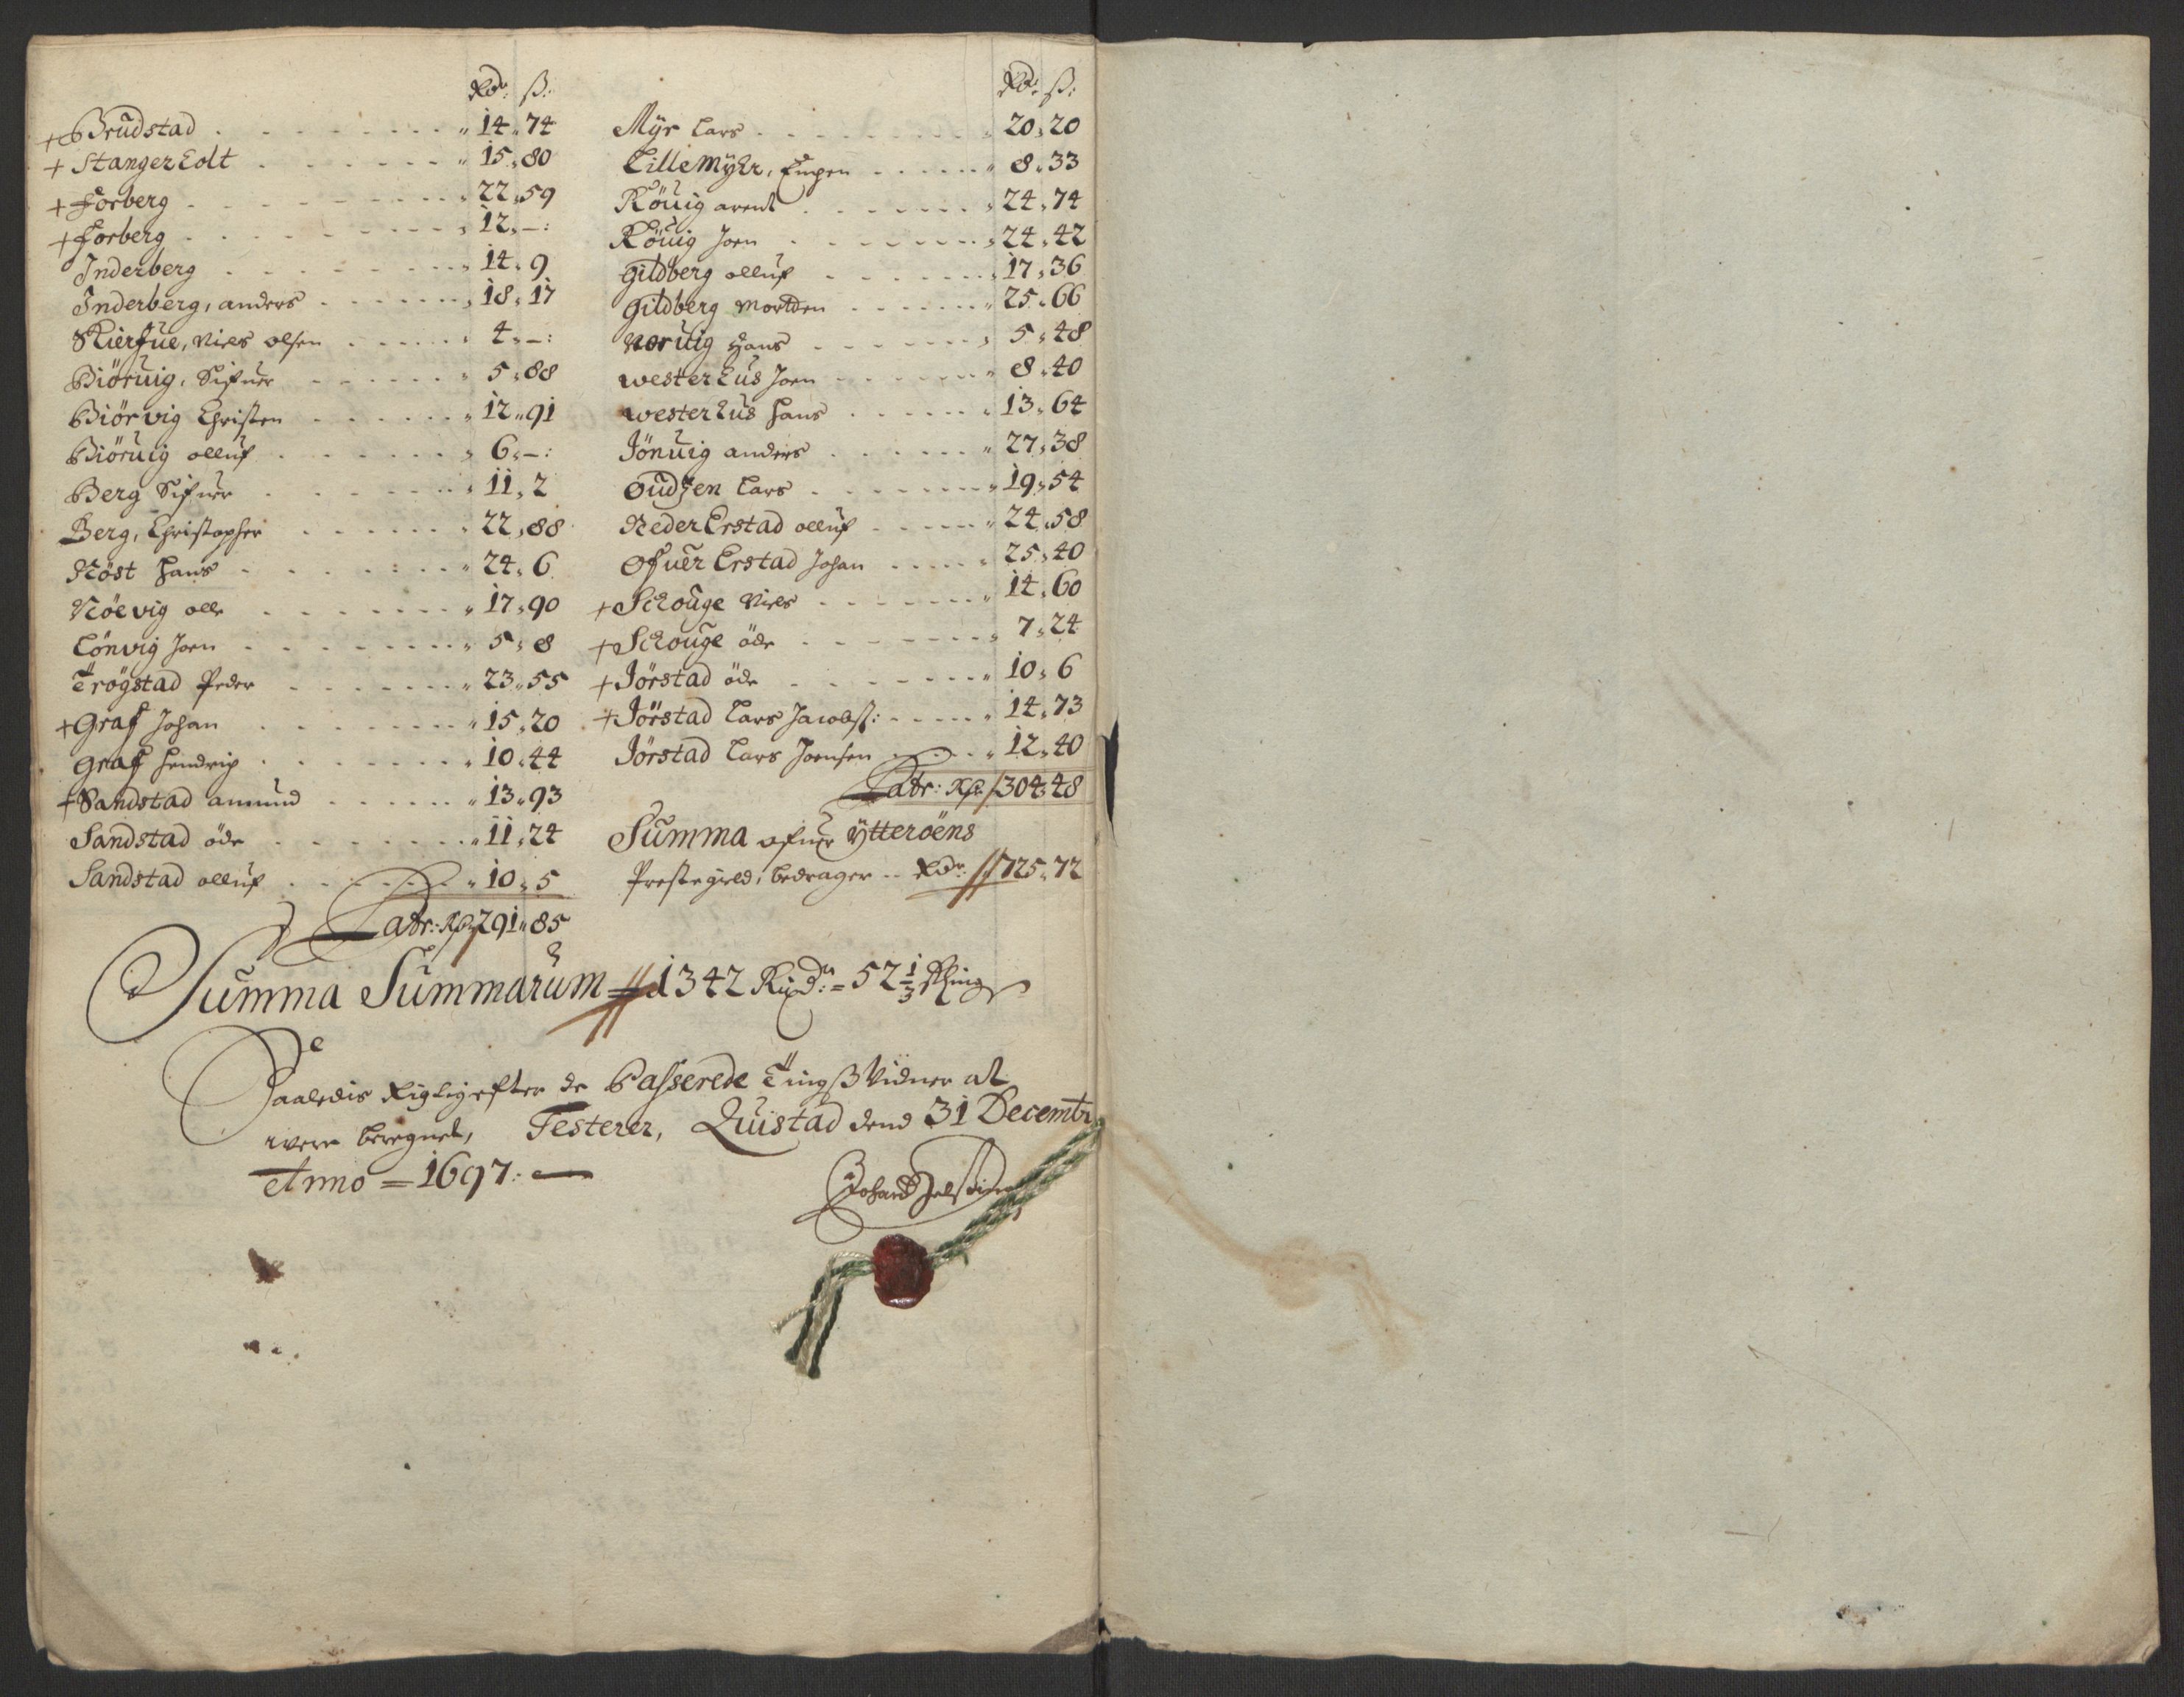 Rdr: ß:
+ Brudstad . . . . . . . . . " 14 " 74
+ Stangerholt . . . . . . . " 15 " 80
+ Forberg . . . . . . . . . " 22 " 59
+ Forberg . . . . . . . . . " 12 " – :
Inderberg . . . . . . . . " 14 " 9
Inderberg, anders . . . . . . " 18 " 17
Kierfue, Niels olsen . . . . . " 4 " – :
Biöruig, Sifuer . . . . . . " 5 " 88
Biörvig Christen . . . . . . " 12 " 91
Biöruig olluf . . . . . . . " 6 " – :
Berg Sifuer . . . . . . . " 11 " 2
Berg, Christopher . . . . . . " 22 " 88
Röst Hans . . . . . . . . " 24 " 6
Nöevig olle . . . . . . . . " 17 " 90
Lönvig Joen . . . . . . . . " 5 " 8
Trögstad Peder . . . . . . . " 23 " 55
+ Graf Johan . . . . . . . . " 15 " 20
Graf Hendrich . . . . . . . " 10 " 44
+ Sandstad amund . . . . . . " 13 " 93
Sandstad öde . . . . . . . " 11 " 24
Sandstad olluf . . . . . . . " 10 " 5
Latr: Rdr 291 " 85
Rdr: ß:
Myr Lars . . . . . . . . . " 20 " 20
Lille Myhr, . . . . . . " 8 " 33
Röuig arent . . . . . . . " 24 " 74
Röuig Joen . . . . . . . . " 24 " 42
Gildberg olluf . . . . . . . " 17 " 36
Gildberg Mortden . . . . . . " 25 " 66
Noruig Hans . . . . . . . " 5 " 48
Westerhus Joen . . . . . . . " 8 " 40
Westerhus Hans . . . . . . " 13 " 64
Jönuig anders . . . . . . " 27 " 38
Oudsen Lars . . . . . . . . " 19 " 54
Neder Erstad olluf . . . . . " 24 " 58
Ofuer Erstad Johan . . . . . " 25 " 40
+ Schouge Niels . . . . . . . " 14 " 60
+ Schouge öde . . . . . . . " 7 " 24
+ Jörstad öde . . . . . . . " 10 " 6
+ Jörstad Lars Jacobs: . . . . . " 14 " 73
Jörstad Lars Joensen . . . . " 12 " 40
Latr: Rdr 304 " 48
Summa ofuer Ytteröens
Prestegield, bedrager - - Rdr: 725 " 72
Summa Summarum = 1342 Rixdr: = 52 1/3 skling
Saaledis Rigtig efter de Passerede Tingß Vidner at
were beregnet, Testerer, Quistad dend 31 Decembr
Anno = 1697: —